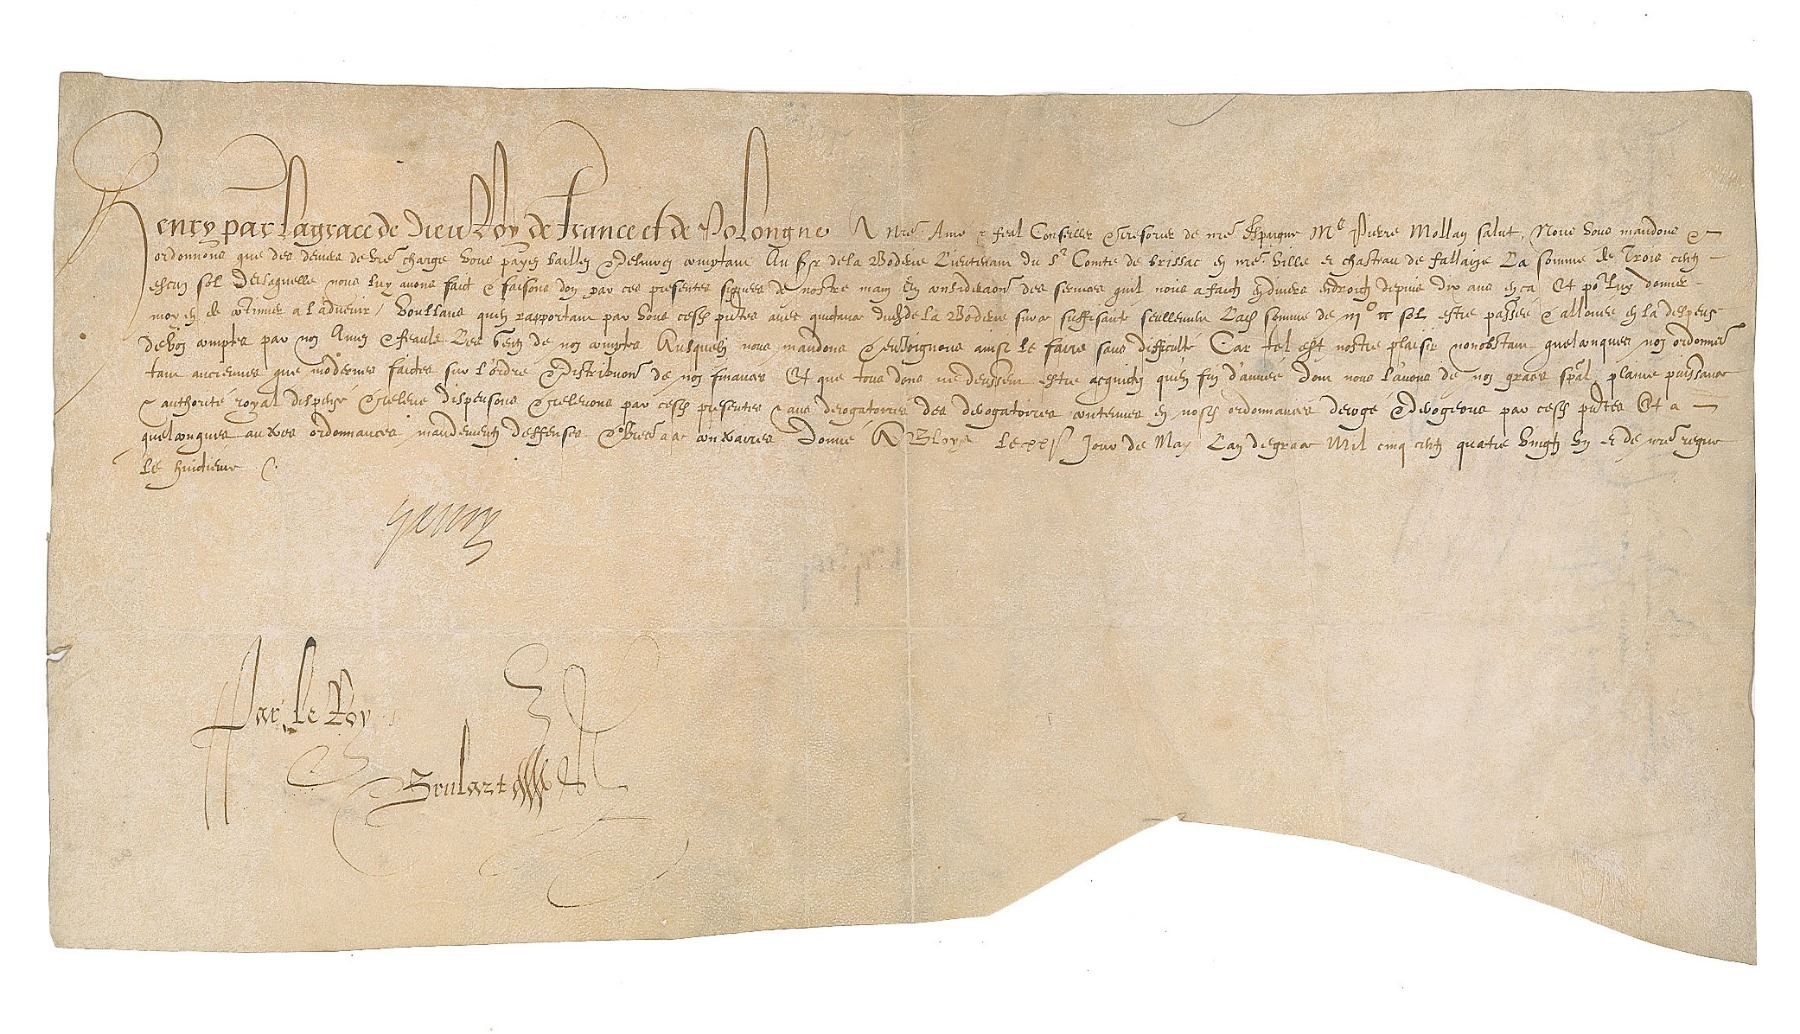 Henry par la grace de Dieu Roy de france et de Polongne A nre Ame & feal Conseiller & tresorier de nre Espargne Me Pierre Mollan salut, Nous vous mandons &
ordonnons que des deniers de vre charge vous payez baillez & delivrez comptant Au Sr de la Boderie Lieutenant du Sr Comte de brissac en nre ville et chasteau de fallaize La somme de Trois cens
escuz sol De laquelle nous luy avons faict & faisons don par ces presentes signees de nostre main En consideraon des services quil nous a faictz en divers endroictz depuis dix ans en ca Et por luy donner
moyen de continuer a ladvenir, Voullans quen rapportant par vous cesd pntes avec quictance dud de la Boderie sur ce suffisante seullement Lad somme de iijc sol estre passee & allouee en la despence
de voz comptes par noz Amez & feaulx Les Gens de noz comptes Ausquelz nous mandons & enjoignons ainsi le faire sans difficulte Car tel est nostre plaisir nonobstant quelconques noz ordonnces
tant anciennes que modernes faictes sur l'ordre & distribution de noz finances Et que telz dons ne deussent estre acquictez quen fin d'annee dont nous l'avons de noz grace spal, plaine puissance
& auctorite royal dispense & releve dispensons & relevons par cesd presentes & aux derogatoires des derogatoires contenues en nosd ordonnances deroge & derogeons par cesd pntes Et a
quelconques autres ordonnances mandemens deffenses & lres a ce contraires Donne A Bloys le xxj jour de May Lan de grace Mil cinq cens quatre vingtz un et de nre regne
le huictieme
Henry
Par le Roy
Brulart